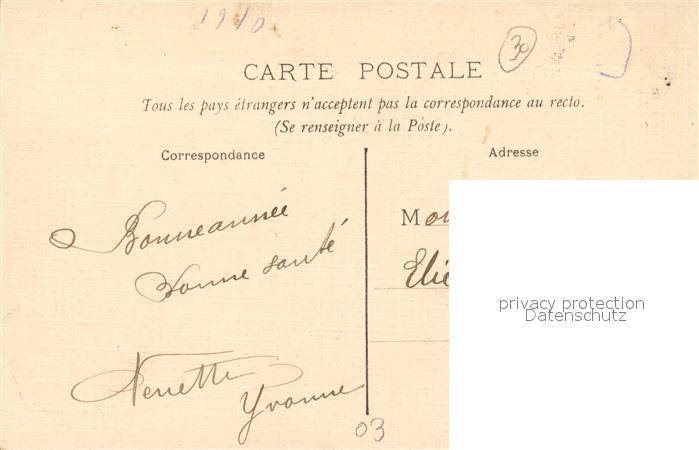 1910
30
CARTE POSTALE
Tous les pays étrangers n'acceptent pas la correspondance au recto.
(Se renseigner à la Poste).
Correspondance
Adresse
Bonne année
Bonne santé
Nenette
Yvonne
Mon
Elie
privacy protection
Datenschutz
03